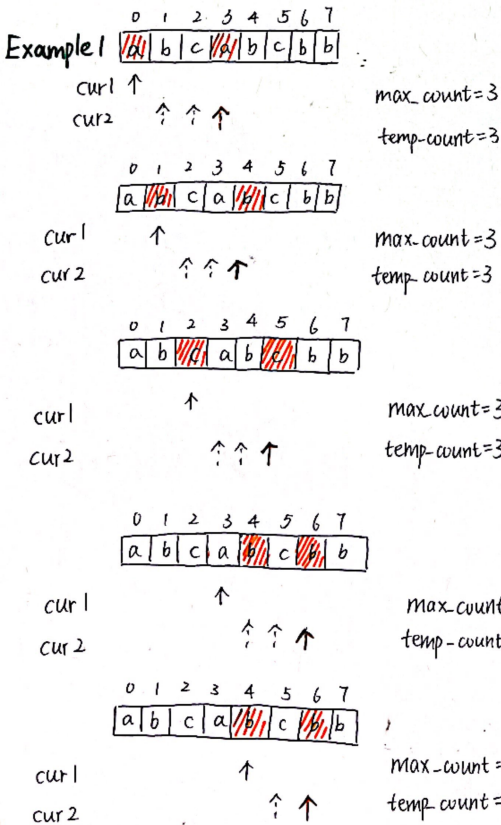 0 1 2 3 4 5 6 7
Example 1 a b c a b c b b
cur1
cur2
max_count=3
temp-count=3
0 1 2 3 4 5 6 7
a b c a b c b b
cur1
cur2
max-count=3
temp-count=3
0 1 2 3 4 5 6 7
a b c a b c b b
cur1
cur2
max-count=3
temp-count=3
0 1 2 3 4 5 6 7
a b c a b c b b
cur1
cur2
max-count
temp-count
0 1 2 3 4 5 6 7
a b c a b c b b
cur1
cur2
max-count=
temp-count=